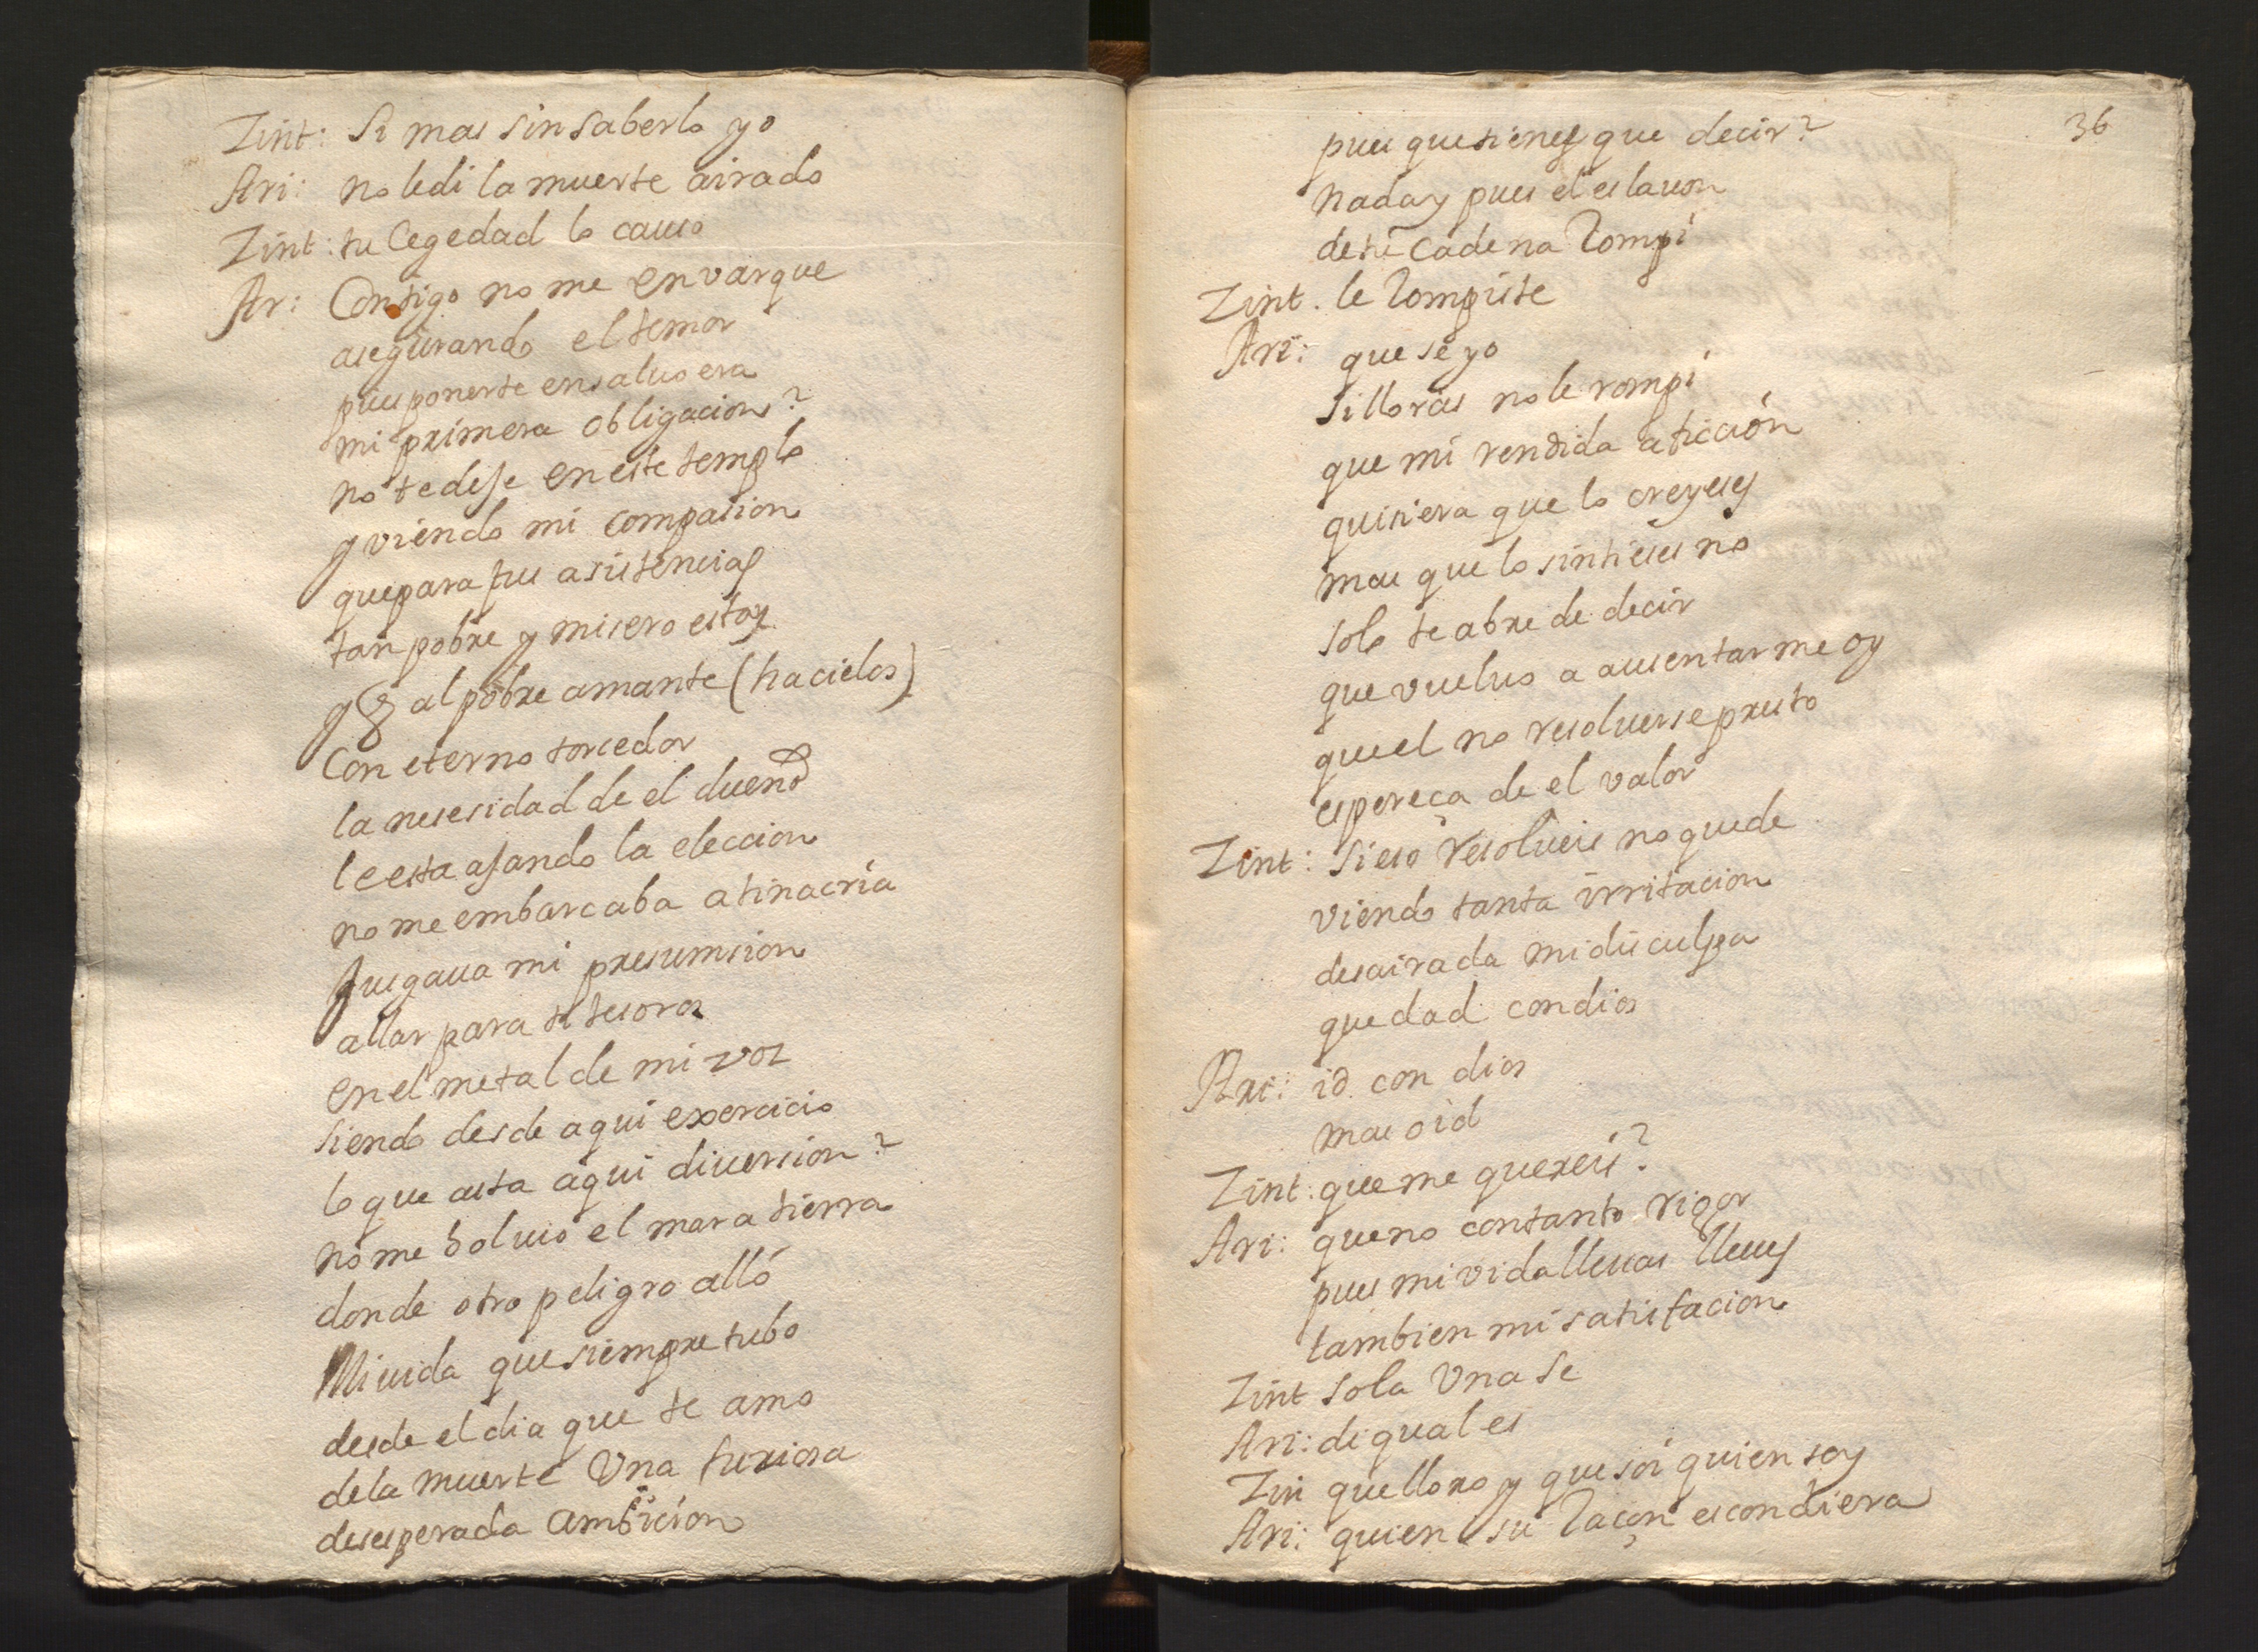 Zint: Si mas sin saberlo yo
Ari: no le di la muerte airado
Zint: tu Cegedad lo causo
Ar: Contigo no me envarque
asegurando el temor
pues ponerte en saluo era
mi primera obligacion?
no te dejé en este templo
y viendo mi compasion
que para tus asistencias
tan pobre y misero estoy
y q al pobre amante (ha cielos)
Con eterno torcedor
la nesesidad de el dueño
le esta ajando la eleccion
no me embarcaba a tinacria
Jusgaua mi presumsion
allar para ti tesoros
en el metal de mi voz
siendo desde aqui exercicio
lo que asta aqui diuersion?
no me boluio el mar a tierra
donde otro peligro alló
Mi uida que siempre tubo
desde el dia que te amo
de la muerte Vna furiosa
deseperada ambicion
36
pues que tienes que decir?
Nada y pues el eslauon
de tu Cadena Rompi
Zint. le Rompiste
Ari: que se yo
si lloras no le rompi
que mi rendida aficción
quisiera que lo creyeses
mas que lo sintieses no
solo te abre de decir
que vueluo a ausentarme oy
que el no resoluerse presto
es pereça de el valor
Zint: si eso Resolueis no quede
viendo tanta irritacion
desairada mi disculpa
quedad con dios
Ari: id con dios
mas oid
Zint: que me quereis?
Ari: que no con tanto rigor
pues mi vida lleuas lleues
tambien mi satisfacion
Zint sola Vna se
Ari: di qual es
Zin que lloro y que soi quien soy
Ari: quien su Raçon escondiera